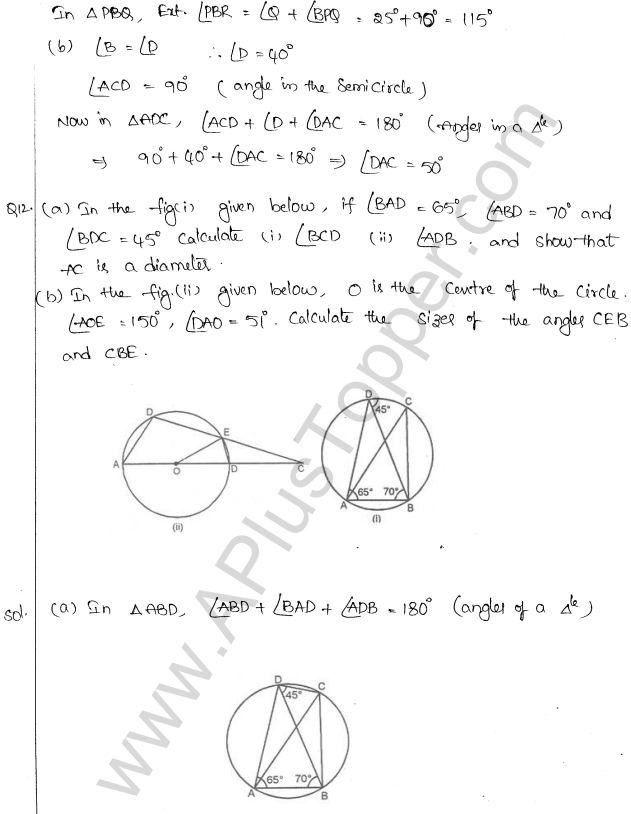 In △PBQ, Ext. ∠PBR = ∠Q + ∠BPQ = 25° + 90° = 115°
(b) ∠B = ∠D ∴ ∠D = 40°
∠ACD = 90° (angle in the Semicircle)
Now in △ADC, ∠ACD + ∠D + ∠DAC = 180° (Angles in a △le)
⇒ 90° + 40° + ∠DAC = 180° ⇒ ∠DAC = 50°
Q12. (a) In the fig(i) given below, if ∠BAD = 65°, ∠ABD = 70° and
∠BDC = 45° Calculate (i) ∠BCD (ii) ∠ADB. and show that
AC is a diameter.
(b) In the fig.(ii) given below, O is the Centre of the Circle.
∠AOE = 150°, ∠DAO = 51°. Calculate the Sizes of the angles CEB
and CBE.
D
E
A
O
D
C
(ii)
D
C
45°
65°
70°
A
B
(i)
Sol. (a) In △ABD, ∠ABD + ∠BAD + ∠ADB = 180° (angles of a △le)
D
C
45°
65°
70°
A
B
www.APlusTopper.com